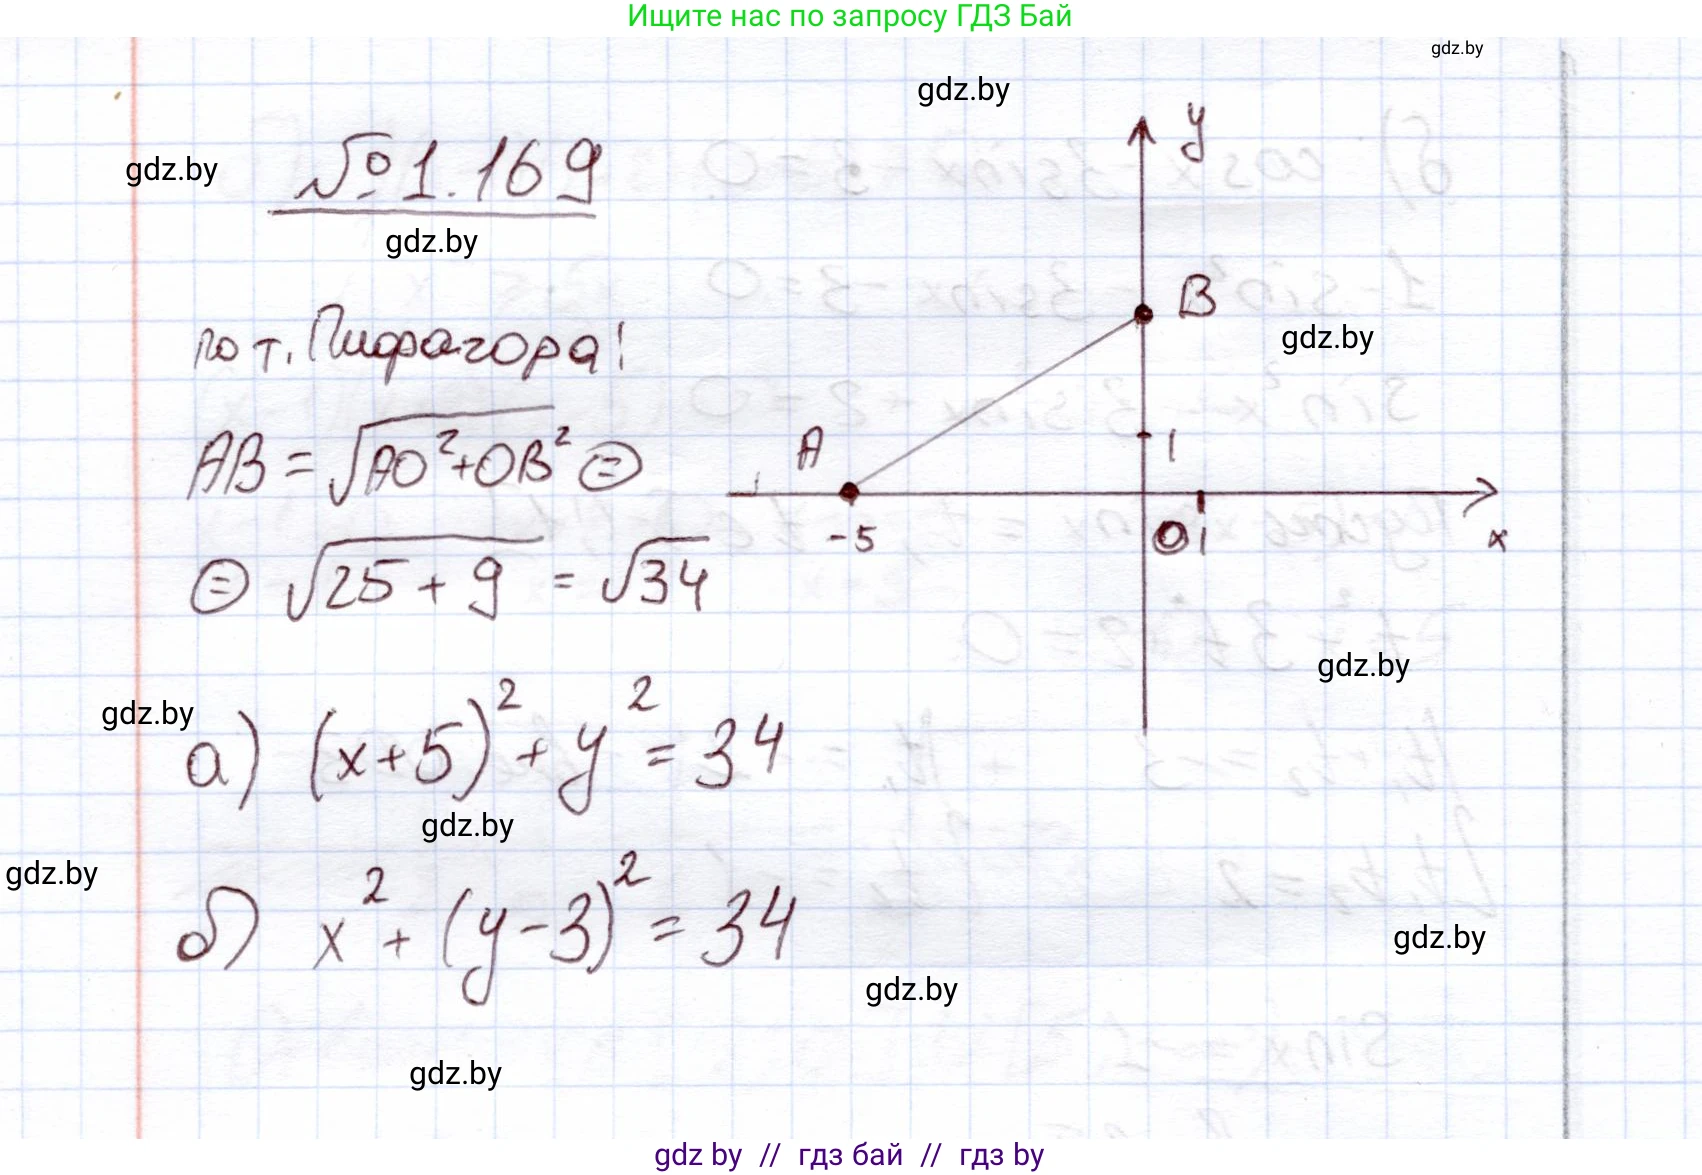 Ищите нас по запросу ГДЗ Бай
gdz.by
gdz.by
gdz.by
№1.169
gdz.by
y
B
gdz.by
по т. Пифагора!
A
1
AB = √AO²+OB² =
-5
0 1
x
= √25 + 9 = √34
gdz.by
gdz.by
а) (x+5)² + y² = 34
gdz.by
gdz.by
б) x² + (y-3)² = 34
gdz.by
gdz.by
gdz.by
gdz by // гдз бай // гдз by